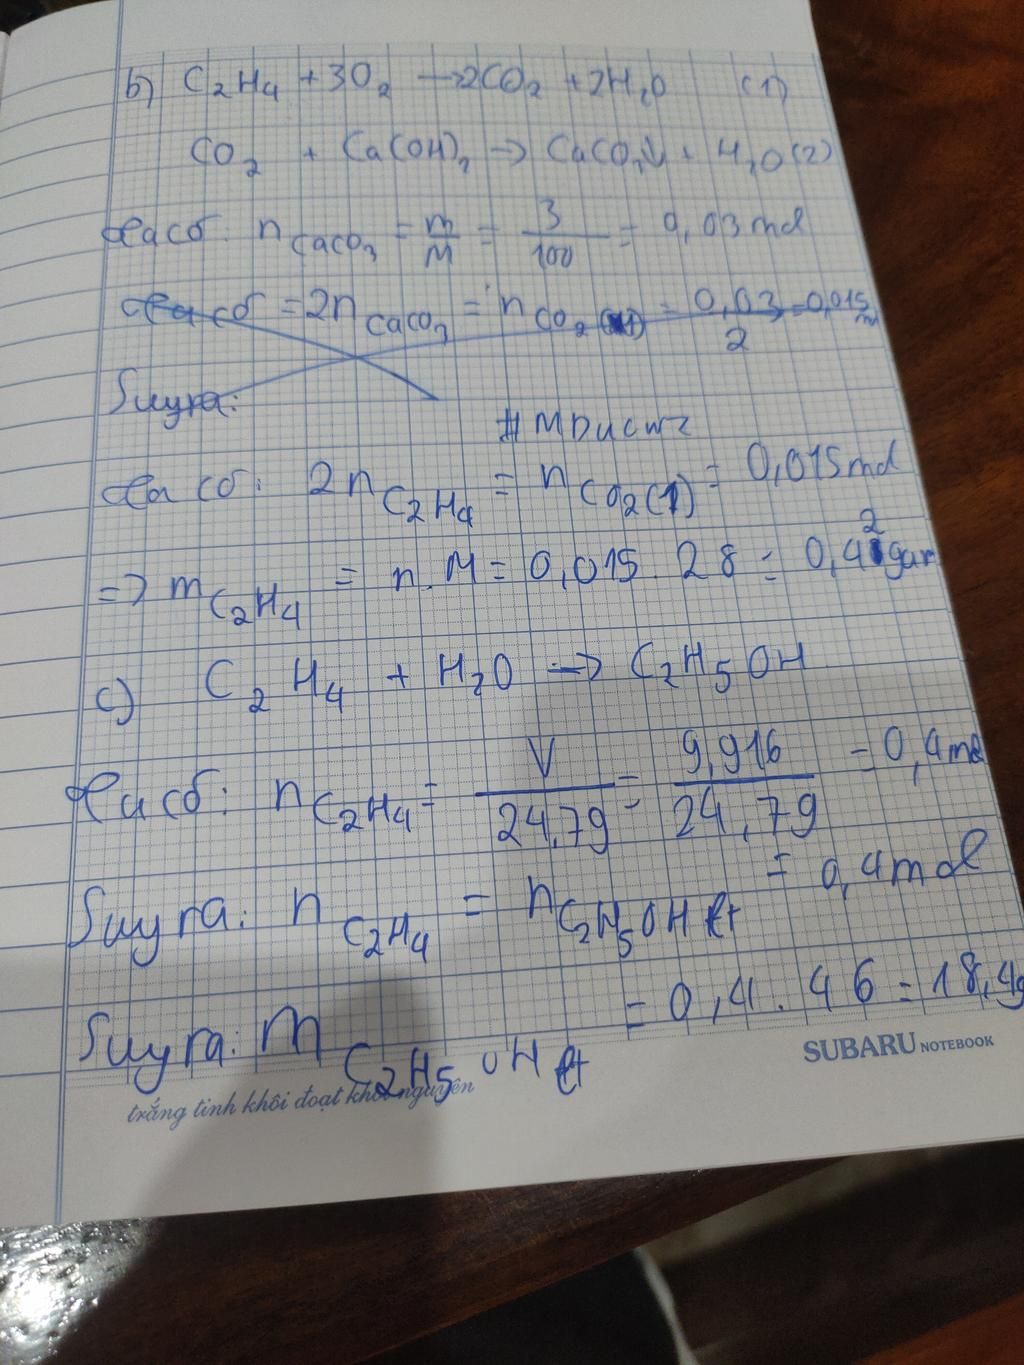 b) C₂H₄ + 3O₂ → 2CO₂ + 2H₂O (1)
CO₂ + Ca(OH)₂ → CaCO₃↓ + H₂O (2)
Ta có: n CaCO₃ = m/M = 3/100 = 0,03 mol
Ta có = 2n CaCO₃ = n CO₂ (1) = 0,03/2 = 0,015 m
Suy ra:
#MDucwz
Ta có: 2n C₂H₄ = n CO₂(1) = 0,015 mol
=> m C₂H₄ = n.M = 0,015.28 = 0,42 gam
c) C₂H₄ + H₂O → C₂H₅OH
Ta có: n C₂H₄ = V/24,79 = 9,916/24,79 = 0,4 mol
Suy ra: n C₂H₄ = n C₂H₅OH lt = 0,4 mol
Suy ra: m C₂H₅OH lt = 0,4.46 = 18,4g
SUBARU NOTEBOOK
trắng tinh khôi đoạt khôi nguyên